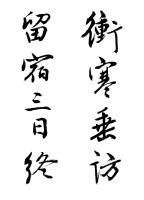 衝寒垂訪
留宿三日終